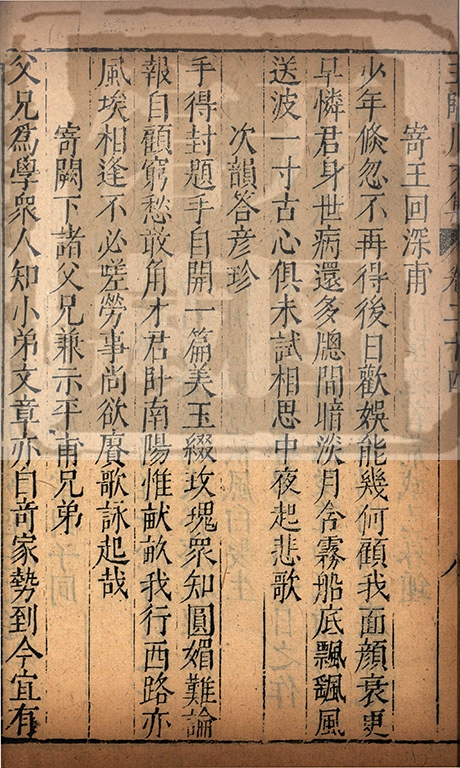 王臨川文集 卷二十四 八
寄王回深甫
少年倐忽不再得後日歡娛能幾何顧我面顏衰更
早憐君身世病還多牕間暗淡月含霧船底飄颻風
送波一寸古心俱未試相思中夜起悲歌
次韻答彥珍
手得封題手自開一篇美玉綴玫瑰眾知圓媚難論
報自顧窮愁敢角才君卧南陽惟畎畝我行西路亦
風埃相逢不必嗟勞事尚欲賡歌詠起哉
寄闕下諸父兄兼示平甫兄弟
父兄爲學眾人知小弟文章亦自奇家勢到今宜有